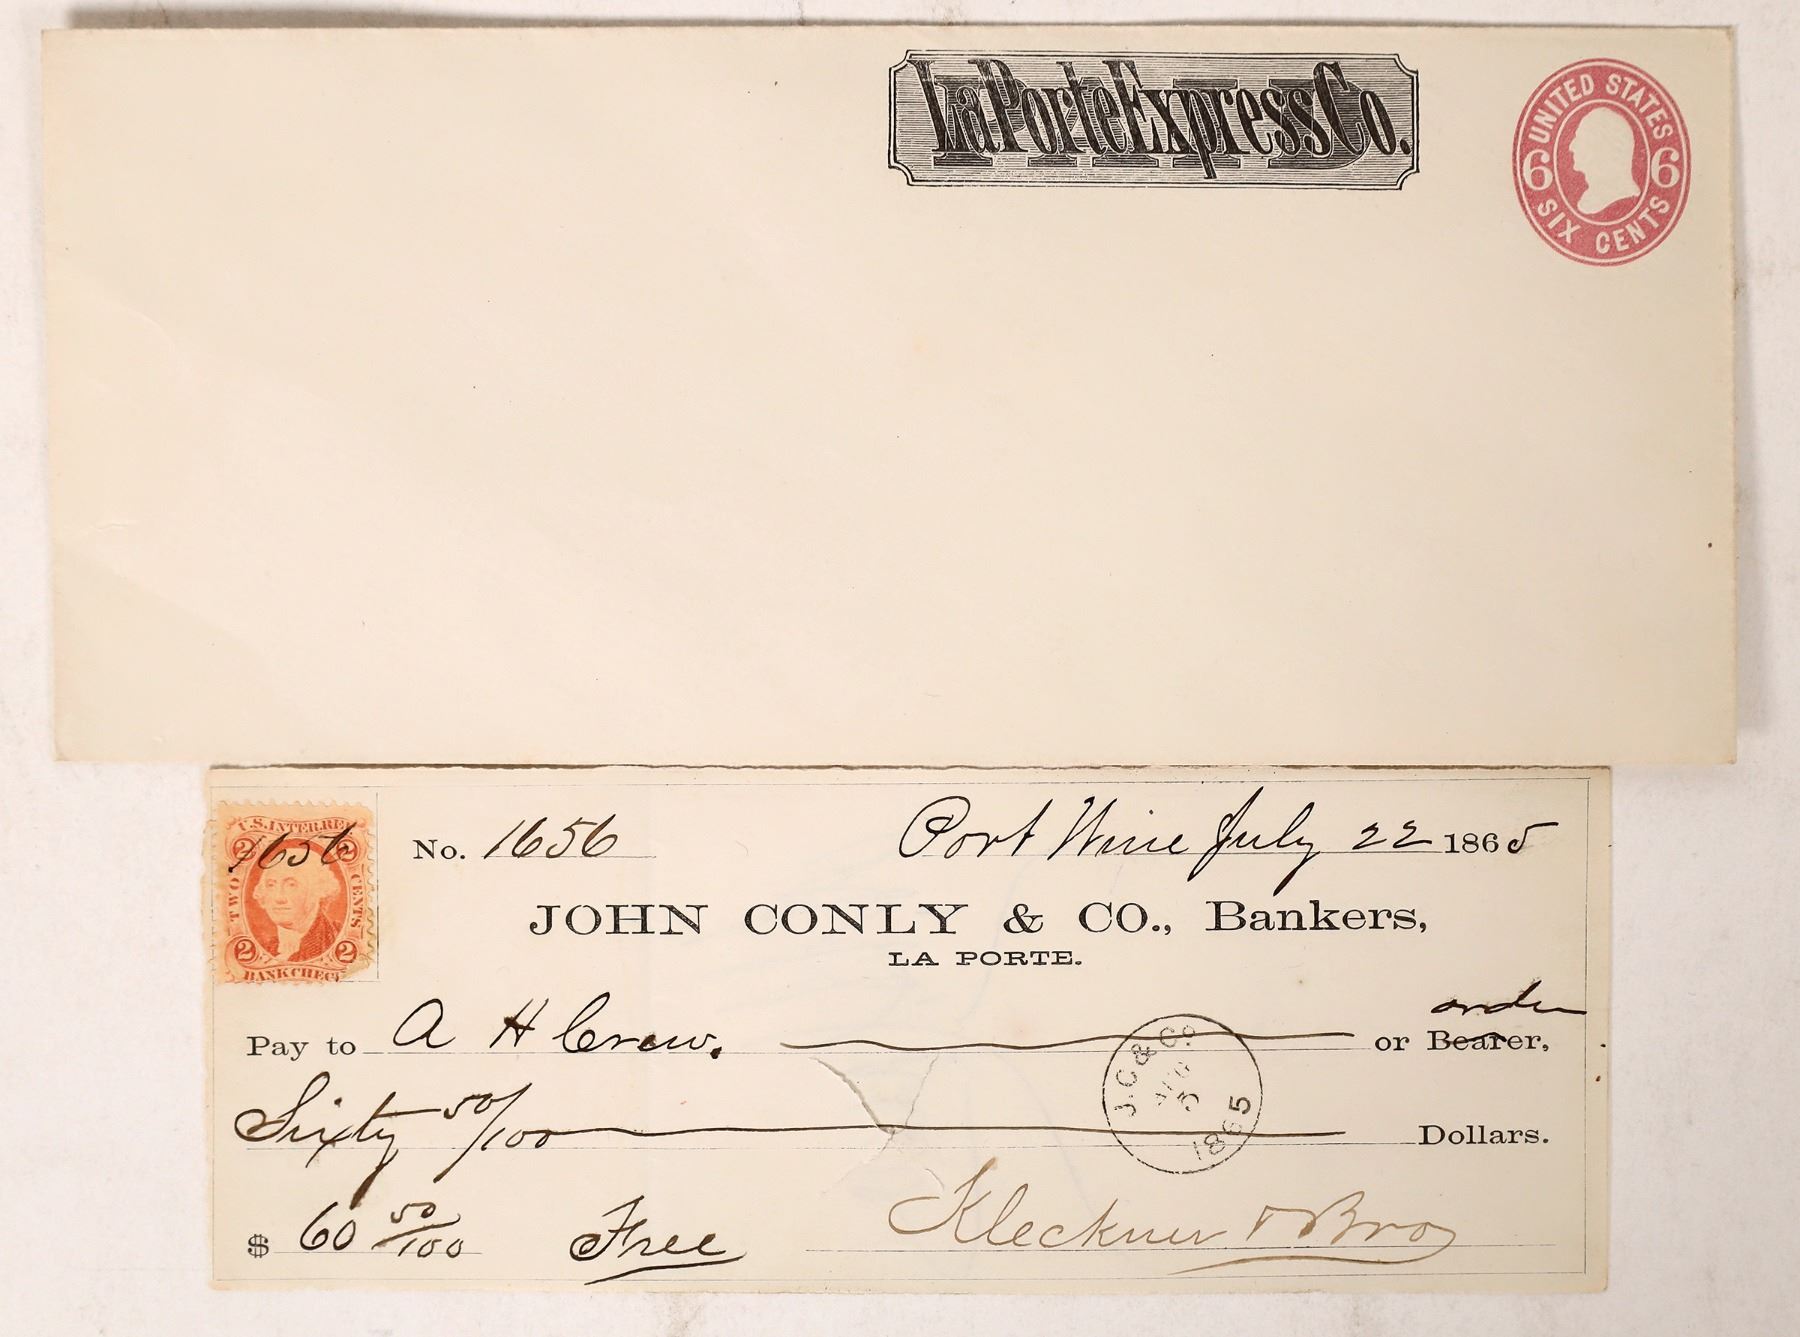 La Porte Express Co.
PAID
UNITED STATES
6 6
SIX CENTS
U.S. INTER. REV.
1656
2 2
TWO CENTS
2 2
BANK CHECK
No. 1656 Port Wine July 22 1865
JOHN CONLY & CO., Bankers,
LA PORTE.
order
Pay to A H Crew. or Bearer,
J. C & Co
AUG
5
1865
Sixty 50/100 Dollars.
$ 60 50/100 Free Kleckner & Bro